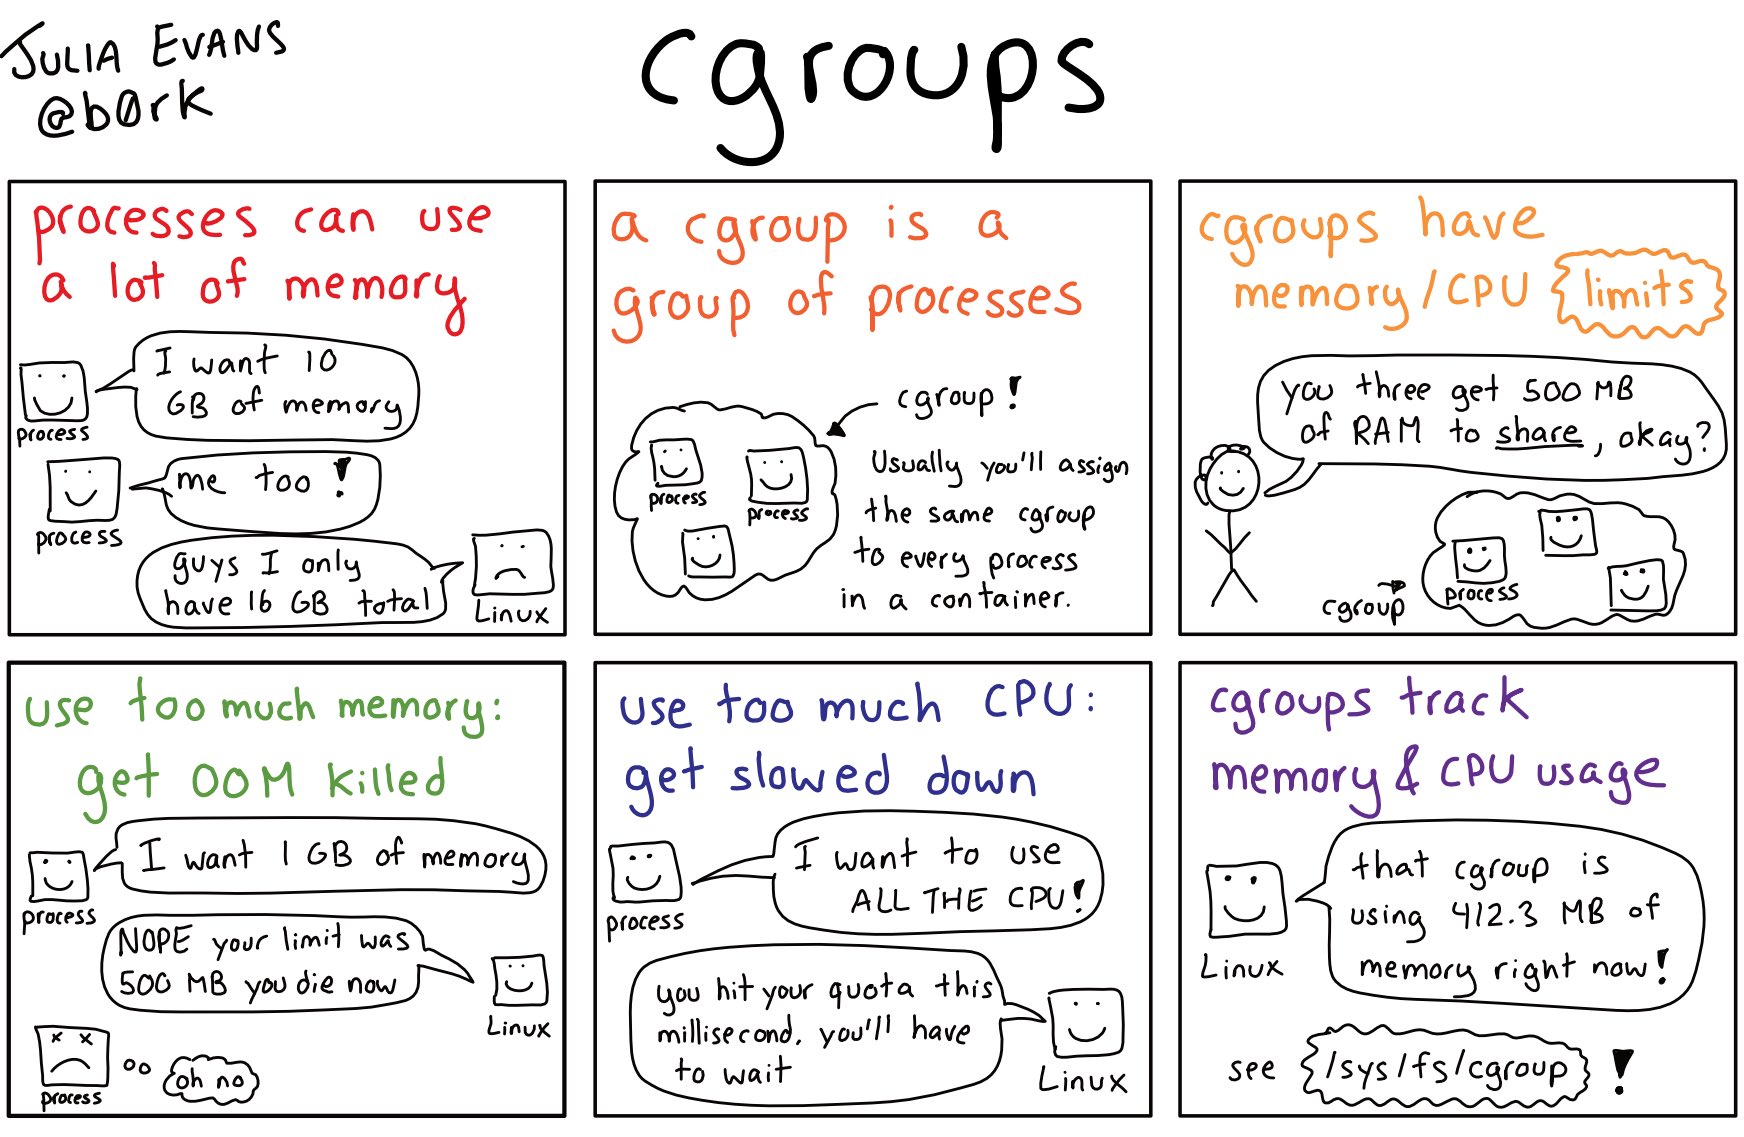 JULIA EVANS
@b0rk
cgroups
processes can use
a lot of memory
I want 10
GB of memory
process
me too!
process
guys I only
have 16 GB total
Linux
a cgroup is a
group of processes
cgroup!
process
process
Usually you'll assign
the same cgroup
to every process
in a container.
cgroups have
memory/CPU limits
you three get 500 MB
of RAM to share, okay?
process
cgroup
use too much memory:
get OOM killed
I want 1 GB of memory
process
NOPE your limit was
500 MB you die now
Linux
oh no
process
use too much CPU:
get slowed down
I want to use
ALL THE CPU!
process
you hit your quota this
millisecond, you'll have
to wait
Linux
cgroups track
memory & CPU usage
that cgroup is
using 412.3 MB of
memory right now!
Linux
see /sys/fs/cgroup !